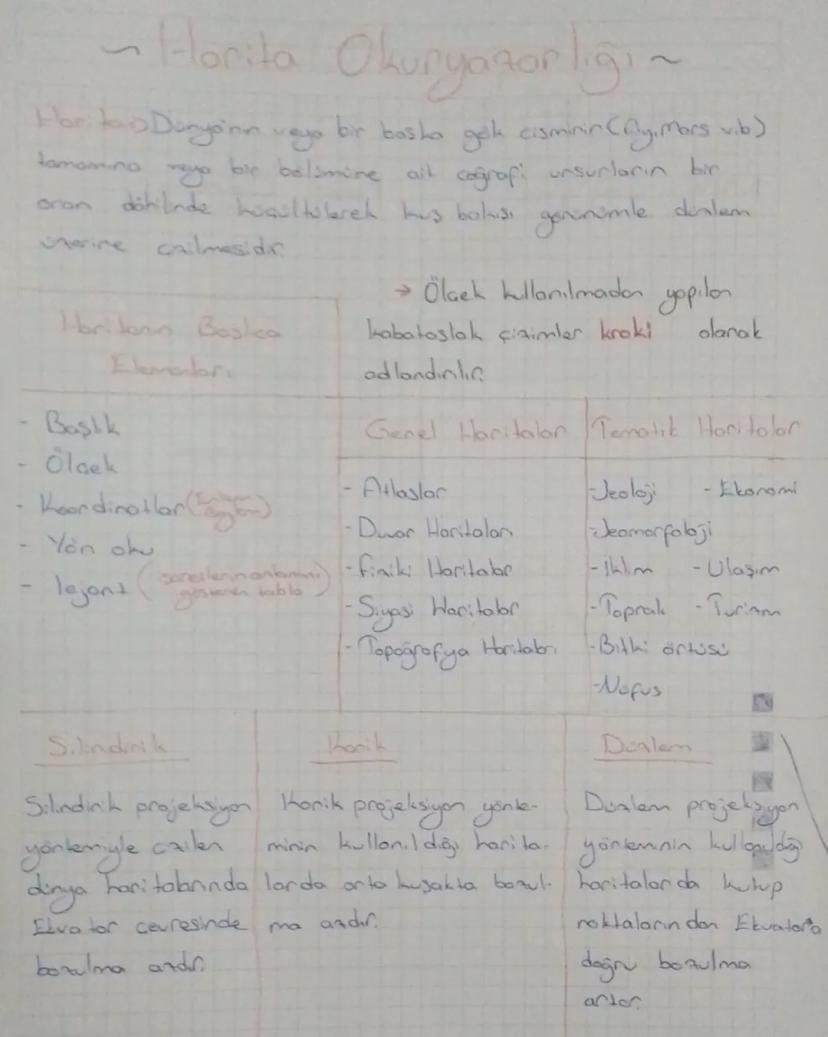 ~ Harita Okuryazarlığı ~
Harita → Dünya'nın veya bir başka gök cisminin (Ay, Mars v.b)
tamamına veya bir bölümüne ait coğrafi unsurların bir
oran dahilinde küçültülerek kuş bakışı görünümle düzlem
üzerine çizilmesidir.
→ Ölçek kullanılmadan yapılan
kabataslak çizimler kroki olarak
adlandırılır.
Haritanın Başlıca
Elemanları
- Başlık
- Ölçek
- Koordinatlar (Enlem Boylam)
- Yön oku
- lejant (işaretlerin anlamını
gösteren tablo)
Genel Haritalar
- Atlaslar
- Duvar Haritaları
- Fiziki Haritalar
- Siyasi Haritalar
- Topoğrafya Haritaları
Tematik Haritalar
- Jeoloji - Ekonomi
- Jeomorfoloji
- iklim - Ulaşım
- Toprak - Turizm
- Bitki örtüsü
- Nüfus
Silindirik
Silindirik projeksiyon
yöntemiyle çizilen
dünya haritalarında
Ekvator çevresinde
bozulma azdır.
Konik
Konik projeksiyon yönte-
minin kullanıldığı harita-
larda orta kuşakta bozul-
ma azdır.
Düzlem
Düzlem projeksiyon
yönteminin kullanıldığı
haritalarda kutup
noktalarından Ekvator'a
doğru bozulma
artar.